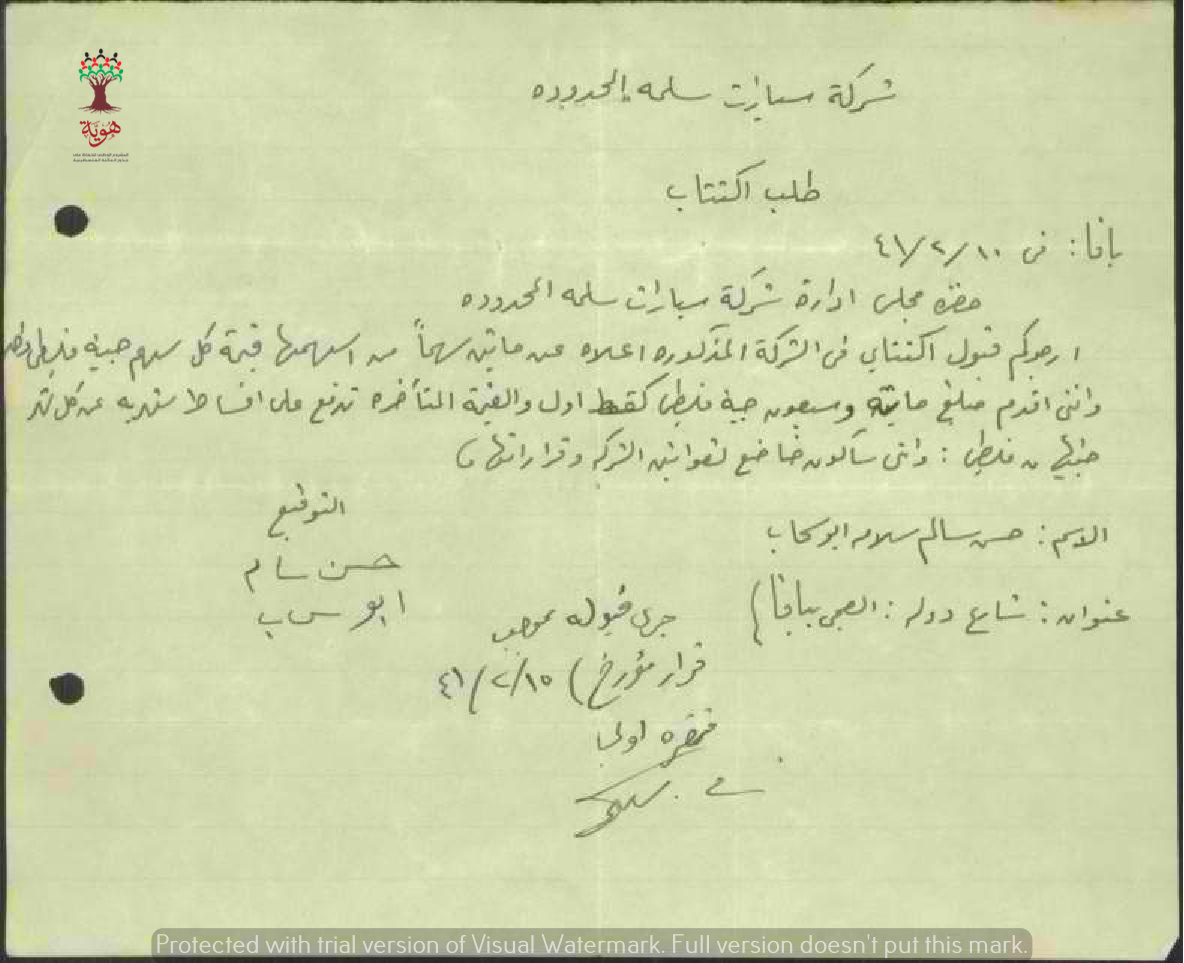 شركة سيارات سلمه المحدوده
هوية
طلب اكتتاب
يافا: في ١٠/٢/٤١
حضرة مجلس ادارة شركة سيارات سلمه المحدوده
ارجوكم قبول اكتتابي في الشركة المذكوره اعلاه عن مايتين سهماً من اسهمها قيمة كل سهم جنيه فلسطيني
وانني اقدم مبلغ مايته وسبعون جنيه فلسطيني كقسط اول والقيمة المتأخره تدفع على اقساط شهريه عن كل شهر
فلسطيني : وانني سأكون خاضع لقوانين الشركه وقراراتها
التوقيع
الاسم : حسن سالم سلامه ابو سحاب
حسن سالم
عنوان : شارع دوله : العجمي بيافا
ابو سحاب
جرى قبوله بموجب
قرار مؤرخ ) ١٥/٢/٤١
فقره اولى
Protected with trial version of Visual Watermark. Full version doesn't put this mark.